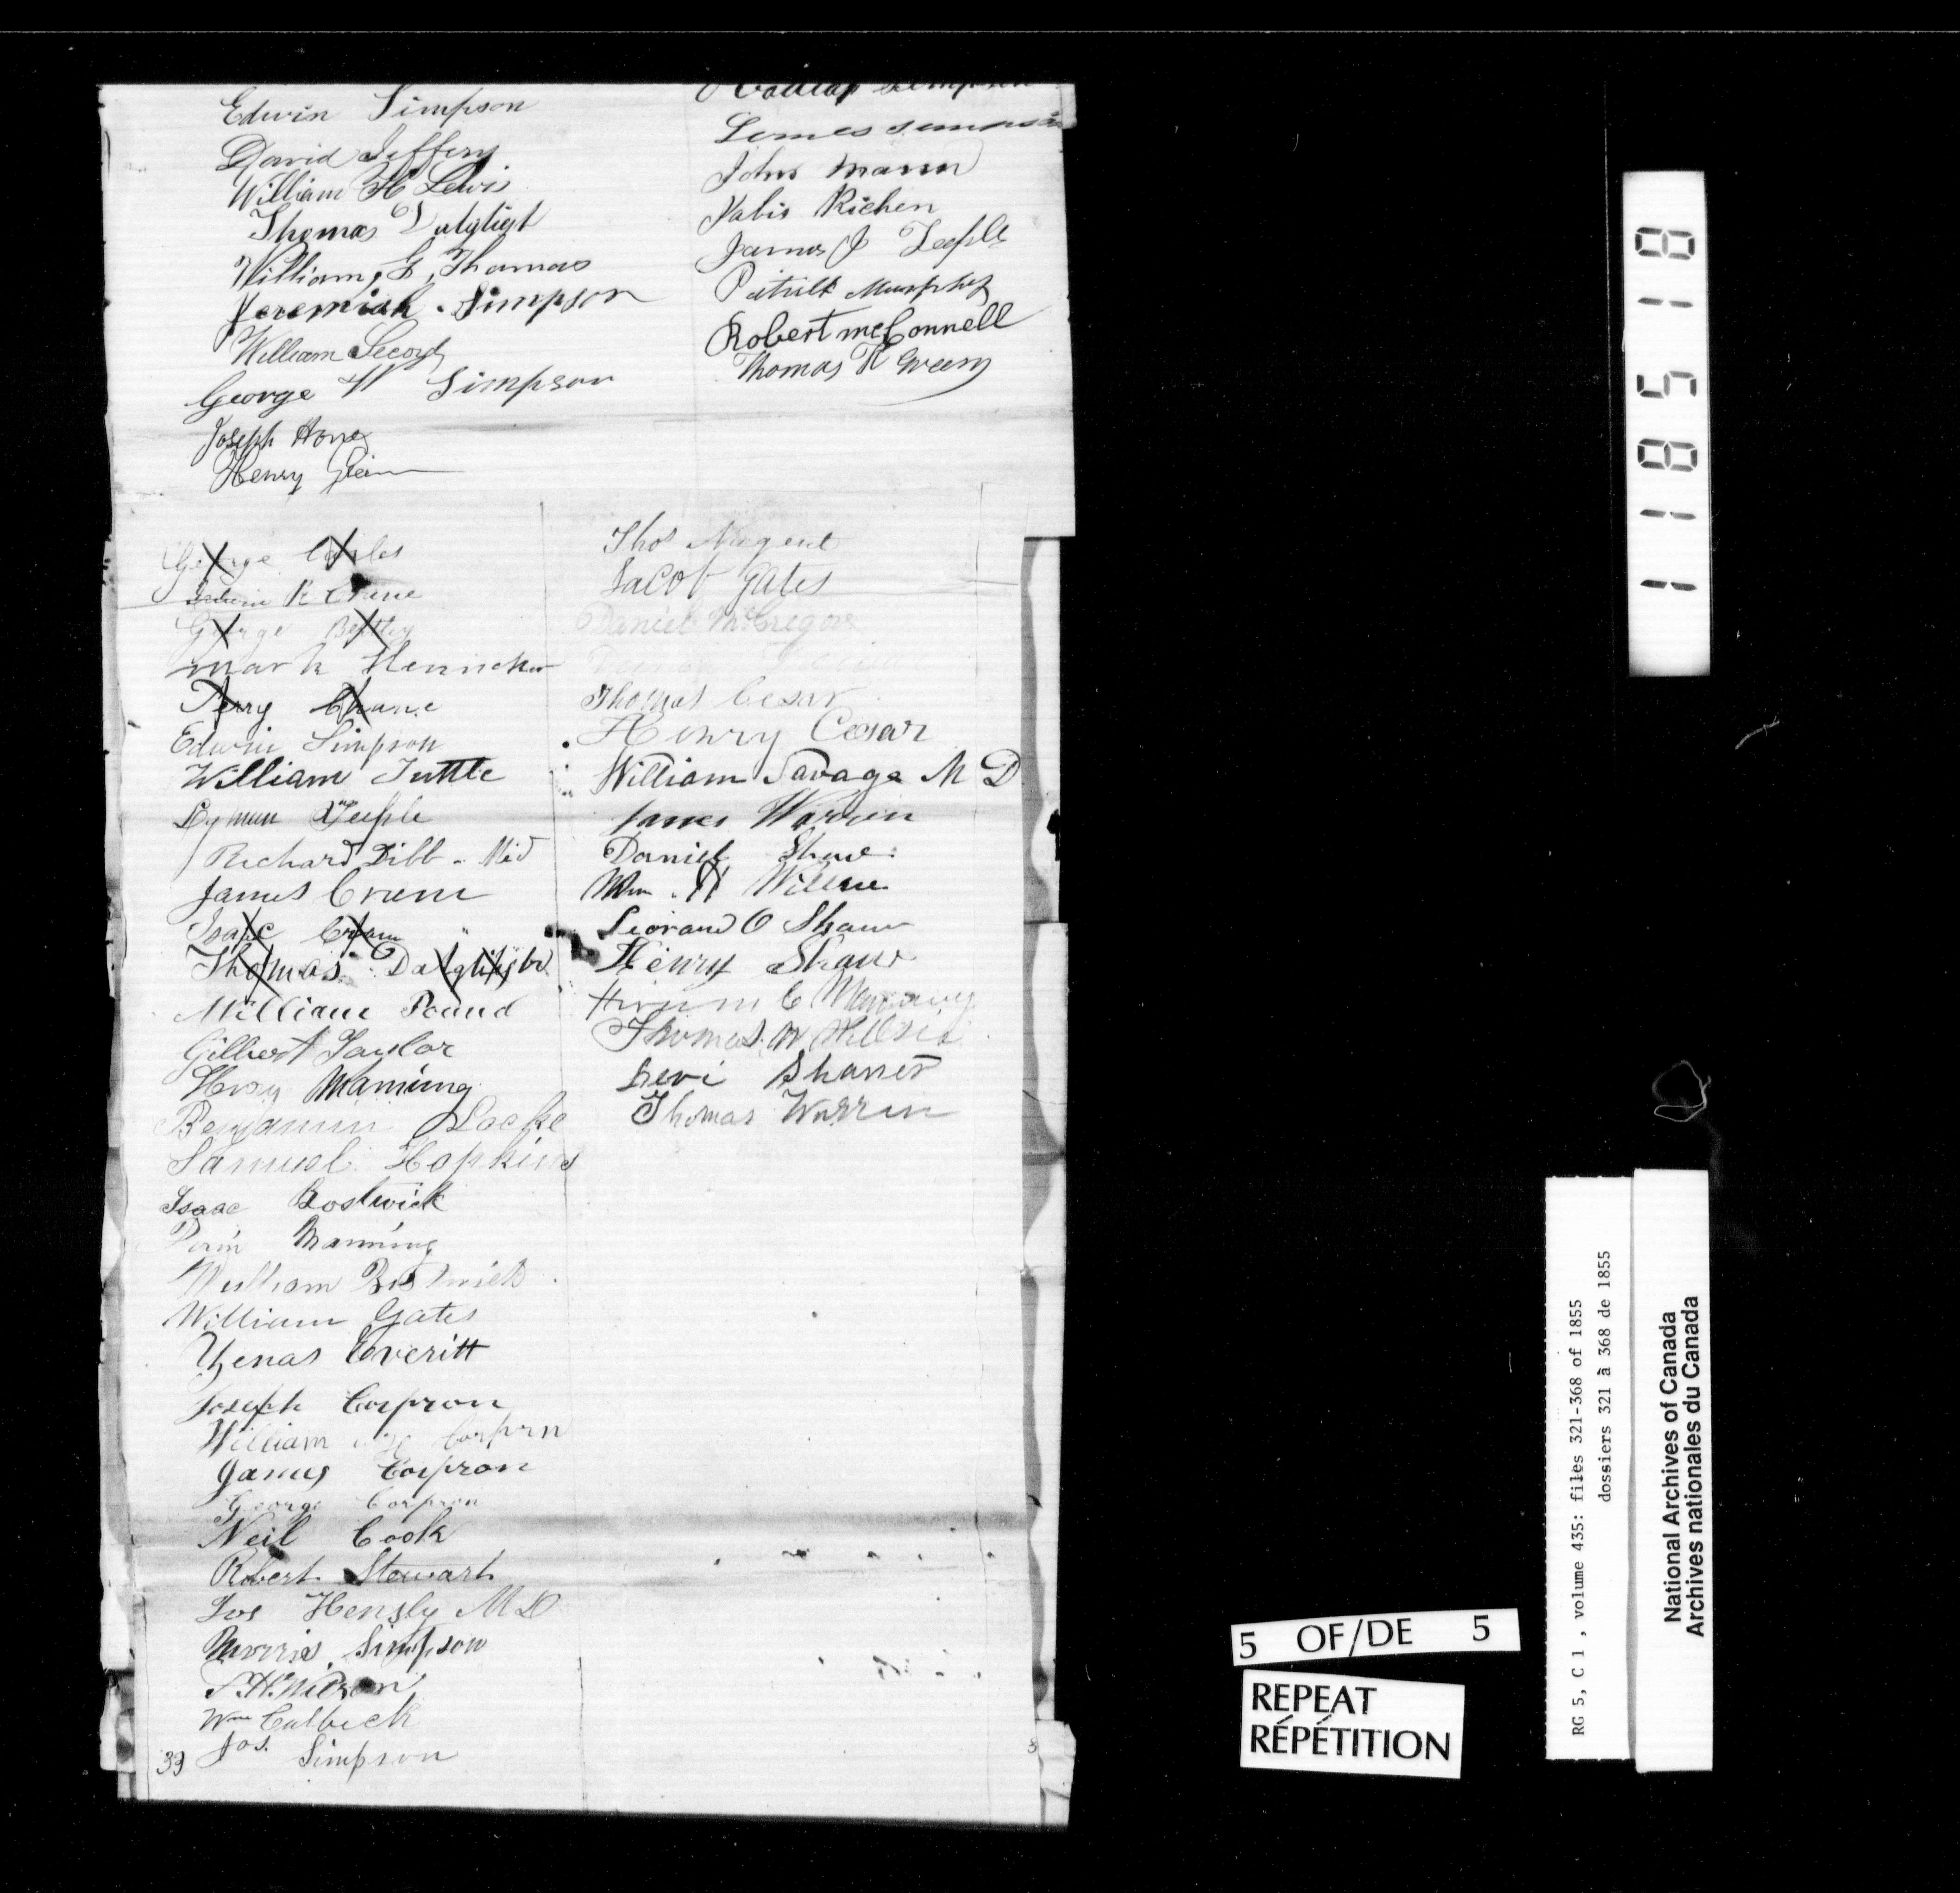 Edwin Simpson
David Jeffery
William H Lewis
Thomas
William, G, Thomas
Jeremiah Simpson
William Secord
George W Simpson
Joseph Hone
Henry
Simpson
James Simpson
John Mann
Richen
James J Teeple
Patrick Murphy
Robert McConnell
Thomas R Green
George
Edwin R Crane
George
Mark Henneker
Perry Crane
Edwin Simpson
William Tuttle
Lyman Teeple
Richard Dibb
James Crane
Isaac Crane
Thomas Dalgliesh
William Pound
Gilbert Taylor
Manning
Benjamin Locke
Samuel Hopkins
Isaac Bostwick
Manning
William Bostwick
William Gates
Zenas Everitt
Joseph Corpron
William Corprn
James Corpron
George Corpron
Neil Cook
Robert Stewart
Jos Hensly MD
Morris Simpson
Wm Calbeck
Jos. Simpson
39
Thos Nugent
Jacob Gates
Daniel McGregor
Thomas Cesar
Henry Cesar
William Savage M D
James Warren
Daniel Shaw
Wm. H
O Shaw
Henry Shaw
Hiram C
Thomas W
Levi Shaner
Thomas Warren
11 1851 8
5 OF/DE 5
REPEAT
RÉPÉTITION
RG 5, C 1 , volume 435: files 321-368 of 1855
dossiers 321 à 368 de 1855
National Archives of Canada
Archives nationales du Canada